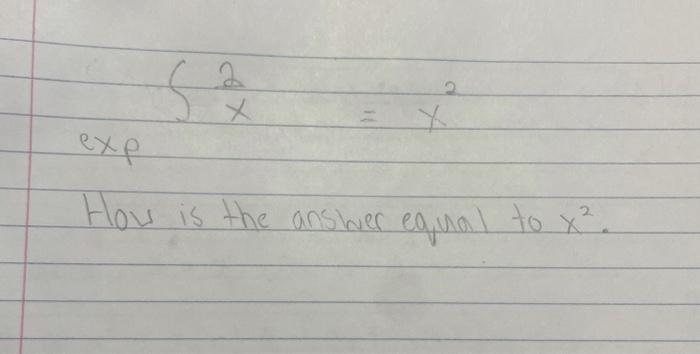 ∫ 2/x = x²
exp
How is the answer equal to x².